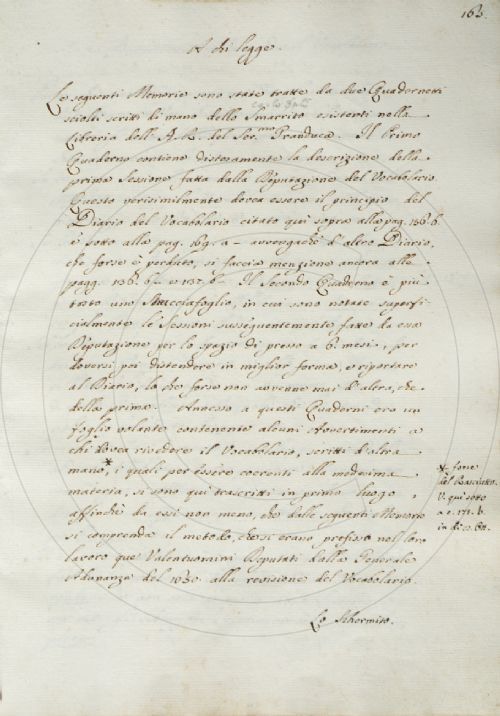 163.
A chi legge.
Le seguenti Memorie sono state tratte da due Quadernetti
sciolti scritti di mano dello Smarrito esistenti nella
Libreria dell' A. R. del Ser.mo Granduca. Il Primo
Quaderno contiene distesamente la descrizione della
prima Sessione fatta dalla Deputazione del Vocabolario.
Questo verisimilmente dovea essere il principio del
Diario del Vocabolario citato qui sopra alla pag. 136. b.
e sotto alla pag. 169. a - avvengachè d'altro Diario,
che forse è perduto, si faccia menzione ancora alle
pagg. 136. b. e 137. b. Il Secondo Quaderno è più
tosto uno Stracciafoglio, in cui sono notate superfi-
cialmente le Sessioni susseguentemente fatte da essa
Deputazione per lo spazio di presso a 6. mesi, per
doversi poi distendere in miglior forma, e riportare
al Diario, lo che forse non avvenne mai d'altra, che
della prima. Annesso a questi Quaderni era un
foglio volante contenente alcuni Avvertimenti a
chi dovea rivedere il Vocabolario, scritti d'altra
mano*, i quali per essere coerenti alla medesima
materia, si sono qui trascritti in primo luogo,
affinchè da essi non meno, che dalle seguenti Memorie
si comprenda il metodo, che si erano prefisso nel loro
lavoro que' Valentuomini Deputati dalla Generale
Adunanza del 1650. alla revisione del Vocabolario.
Lo Schermito.
* forse
del
V. qui sotto
a c. 171. b.